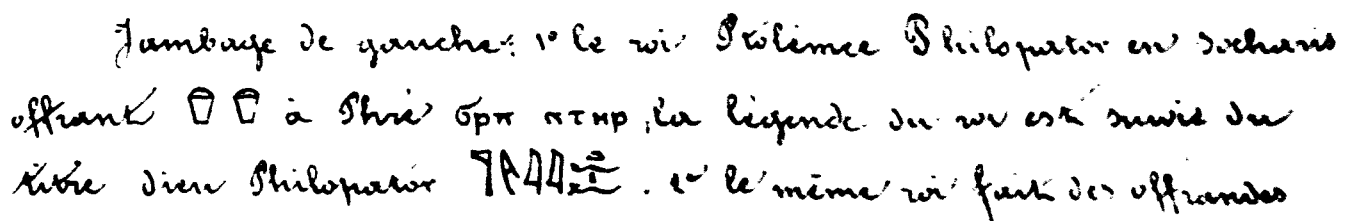 Jambage de gauche: 1° le roi Ptolémée Philopator en socharis
offrant à Phré ϭⲣⲡ ⲛⲧⲏⲣ, la légende du roi est suivie du
titre dieu Philopator . 2° le même roi fait des offrandes